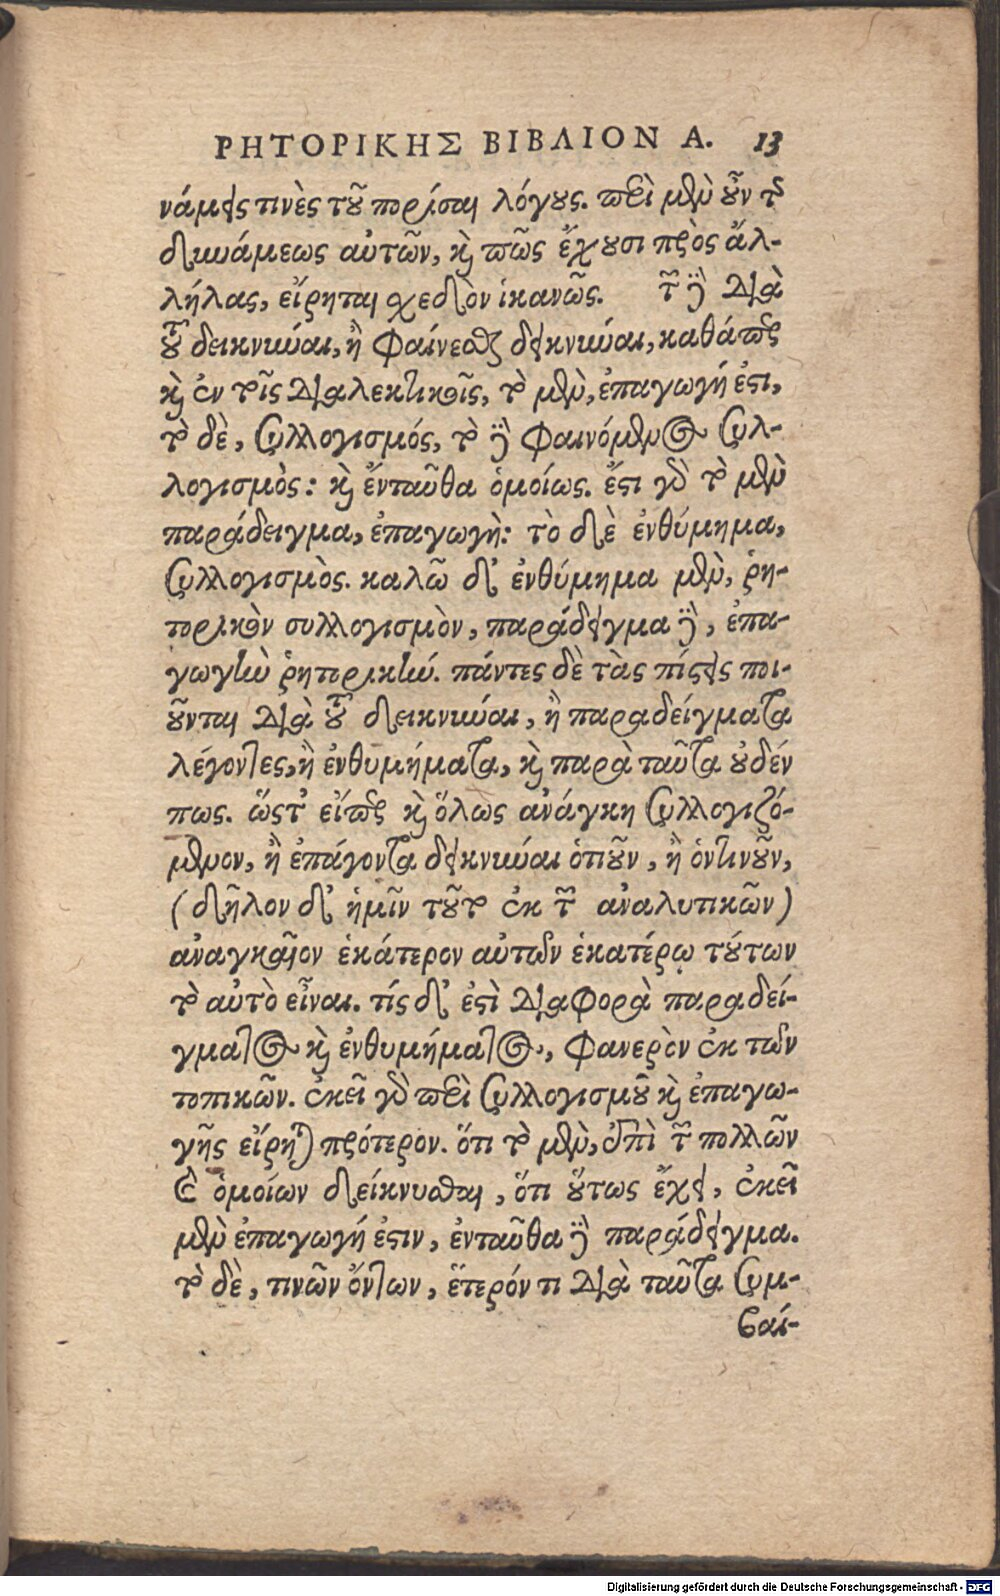 ΡΗΤΟΡΙΚΗΣ ΒΙΒΛΙΟΝ Α. 13
νάμεις τινὲς τοῦ πορίσαι λόγους. περὶ μὲν οὖν τῆς
δυνάμεως αὐτῶν, καὶ πῶς ἔχουσι πρὸς ἄλ-
λήλας, εἴρηται σχεδὸν ἱκανῶς. τῶν δὲ διὰ
τοῦ δεικνύναι, ἢ φαίνεσθαι δεικνύναι, καθάπερ
καὶ ἐν τοῖς διαλεκτικοῖς, τὸ μὲν, ἐπαγωγή ἐστι,
τὸ δὲ, συλλογισμός, τὸ δὲ φαινόμενος συλ-
λογισμὸς: καὶ ἔνταῦθα ὁμοίως. ἔστι γὰρ τὸ μὲν
παράδειγμα, ἐπαγωγὴ: τὸ δὲ ἐνθύμημα,
συλλογισμὸς. καλῶ δ' ἐνθύμημα μὲν, ῥη-
τορικὸν συλλογισμὸν, παράδειγμα δὲ, ἐπα-
γωγὴν ῥητορικήν. πάντες δὲ τὰς πίστεις ποι-
οῦνται διὰ τοῦ δεικνύναι, ἢ παραδείγματα
λέγοντες, ἢ ἐνθυμήματα, καὶ παρὰ ταῦτα οὐδέν
πως. ὥστ' εἴπερ καὶ ὅλως ἀνάγκη συλλογιζό-
μενον, ἢ ἐπάγοντα δεικνύναι ὁτιοῦν, ἢ ὁντινοῦν,
(δῆλον δ' ἡμῖν τοῦτο ἐκ τῶν ἀναλυτικῶν)
ἀναγκαῖον ἑκάτερον αὐτῶν ἑκατέρῳ τούτων
τὸ αὐτὸ εἶναι. τίς δ' ἐστὶ διαφορὰ παραδεί-
γματος καὶ ἐνθυμήματος, φανερὸν ἐκ τῶν
τοπικῶν. ἐκεῖ γὰρ περὶ συλλογισμοῦ καὶ ἐπαγω-
γῆς εἴρηται πρότερον. ὅτι τὸ μὲν, ἐπὶ τῶν πολλῶν
καὶ ὁμοίων δείκνυσθαι, ὅτι οὕτως ἔχει, ἐκεῖ
μὲν ἐπαγωγή ἐστιν, ἐνταῦθα δὲ παράδειγμα.
τὸ δὲ, τινῶν ὄντων, ἕτερόν τι διὰ ταῦτα συμ-
βαί-
Digitalisierung gefördert durch die Deutsche Forschungsgemeinschaft - DFG